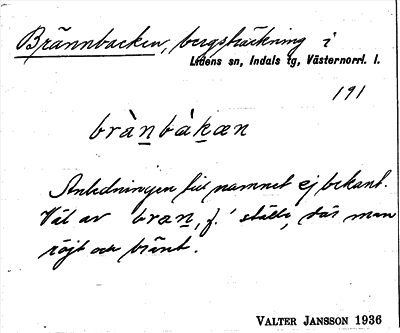 Brännbacken, bergsträckning i
Lidens sn, Indals tg, Västernorrl. l.
191
bràṉbàḵæn
Anledningen till namnet ej bekant.
Väl av braṉ, f. ställe, där man
röjt och bränt.
VALTER JANSSON 1936